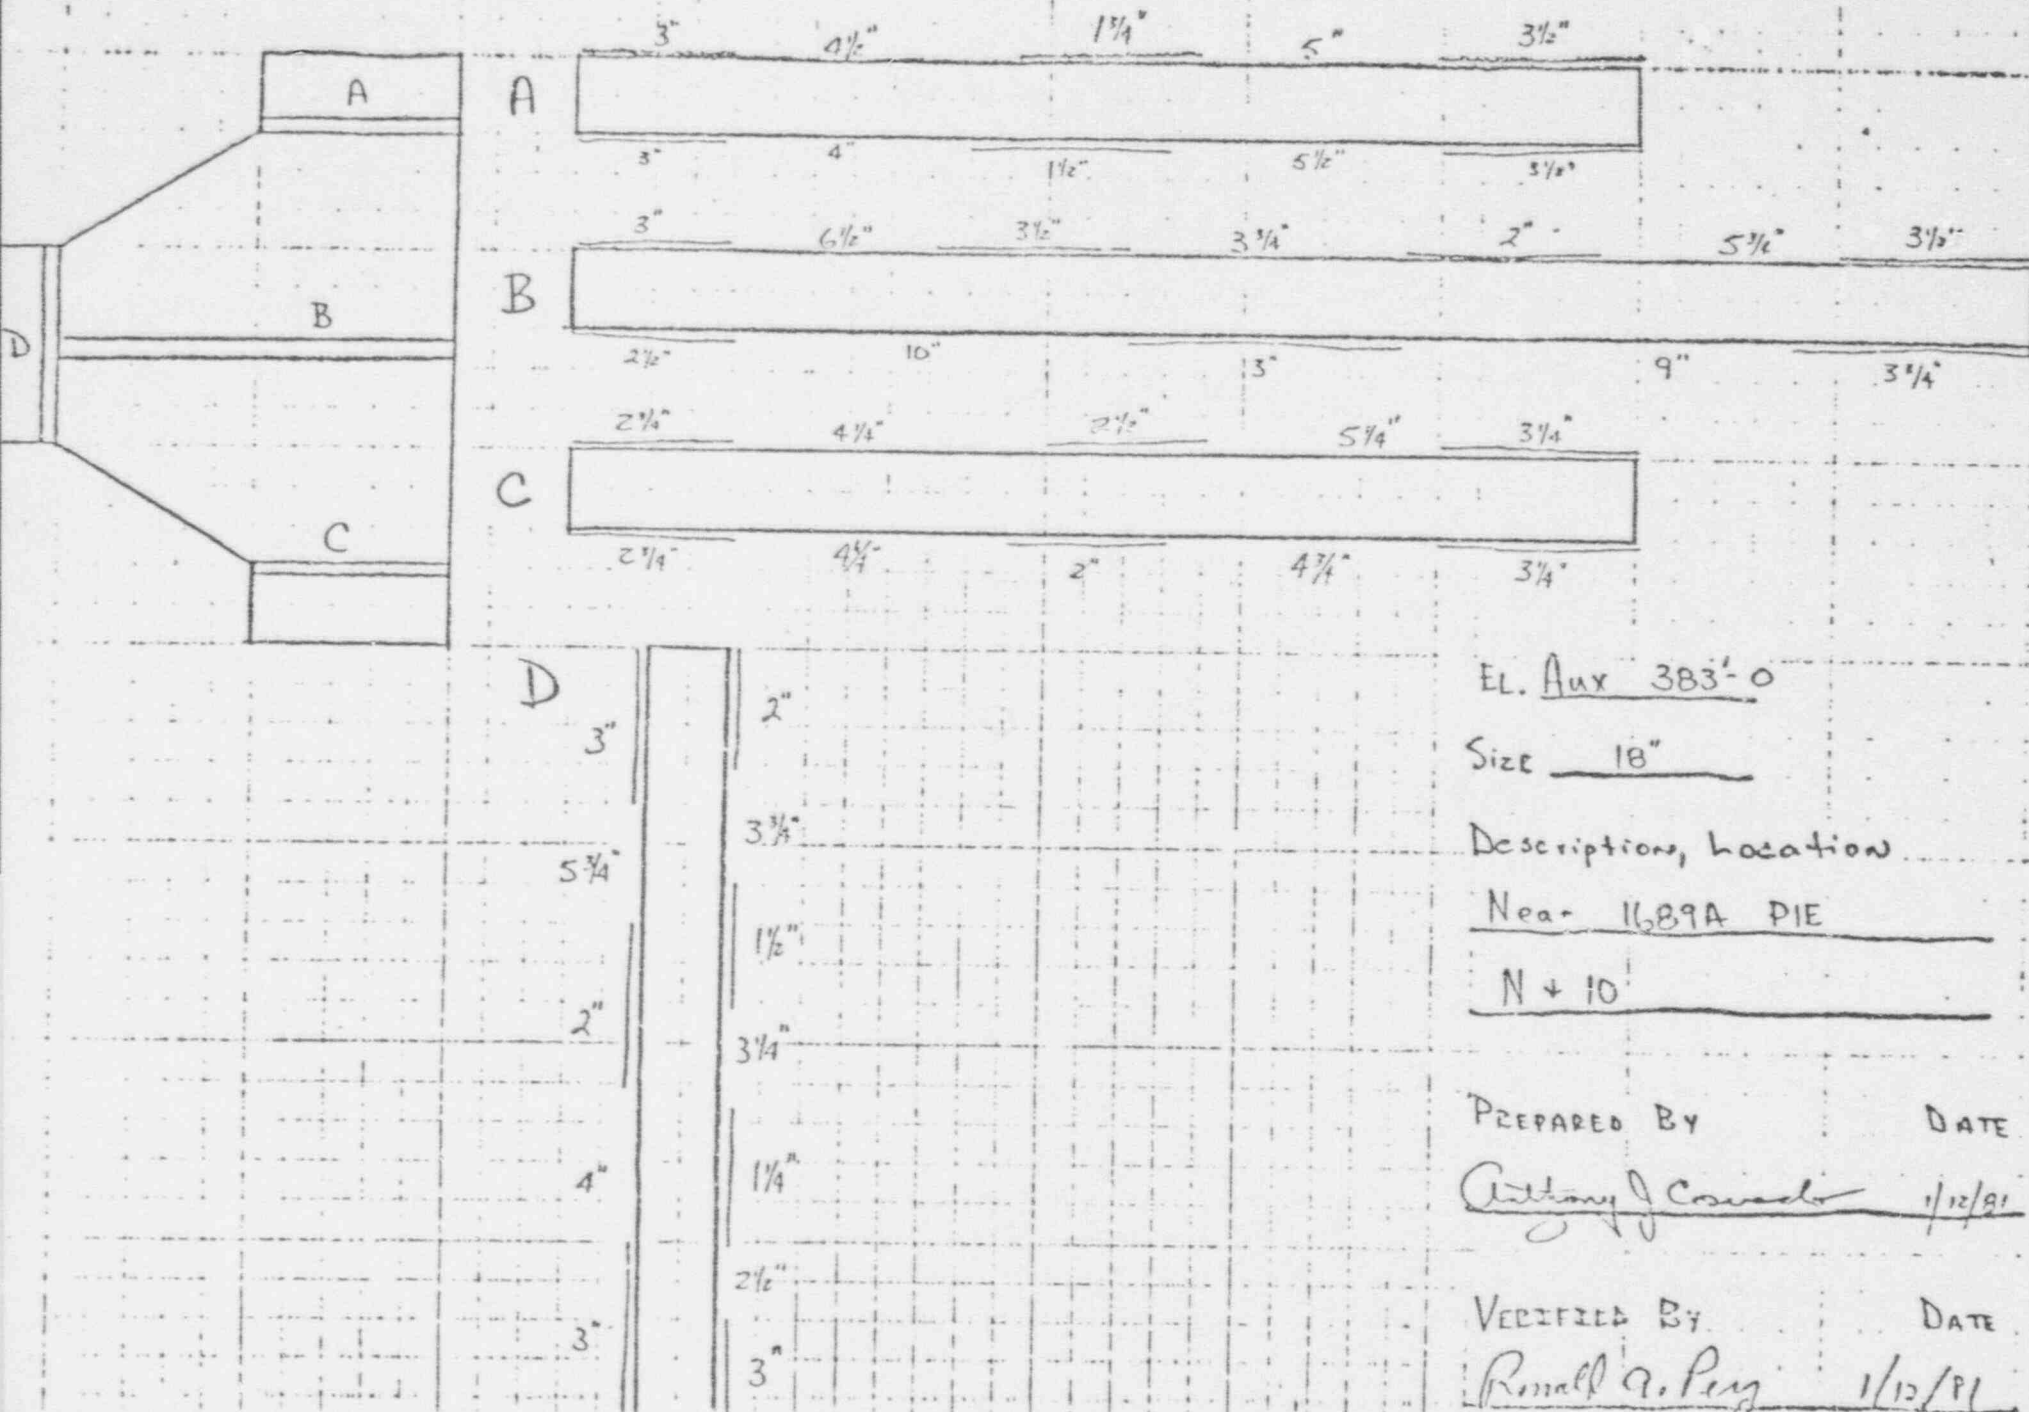 3" 4½" 1¾" 5" 3½"
A A
3" 4" 1½" 5½" 3½"
3" 6½" 3½" 3¾" 2" 5¾" 3½"
B B
D
2½" 10" 3" 9" 3¾"
2¾" 4¼" 2½" 5¼" 3¼"
C C
2¾" 2" 4¾" 3¼"
D
2"
3"
3¾"
5¾"
1½"
2"
3¼"
4"
1¼"
2½"
3"
3"
EL. Aux 383'-0
Size 18"
Description, Location
Near 1689A PIE
N + 10
PREPARED BY DATE
Anthony J 1/12/81
VERIFIED BY DATE
Ronald A. 1/12/81